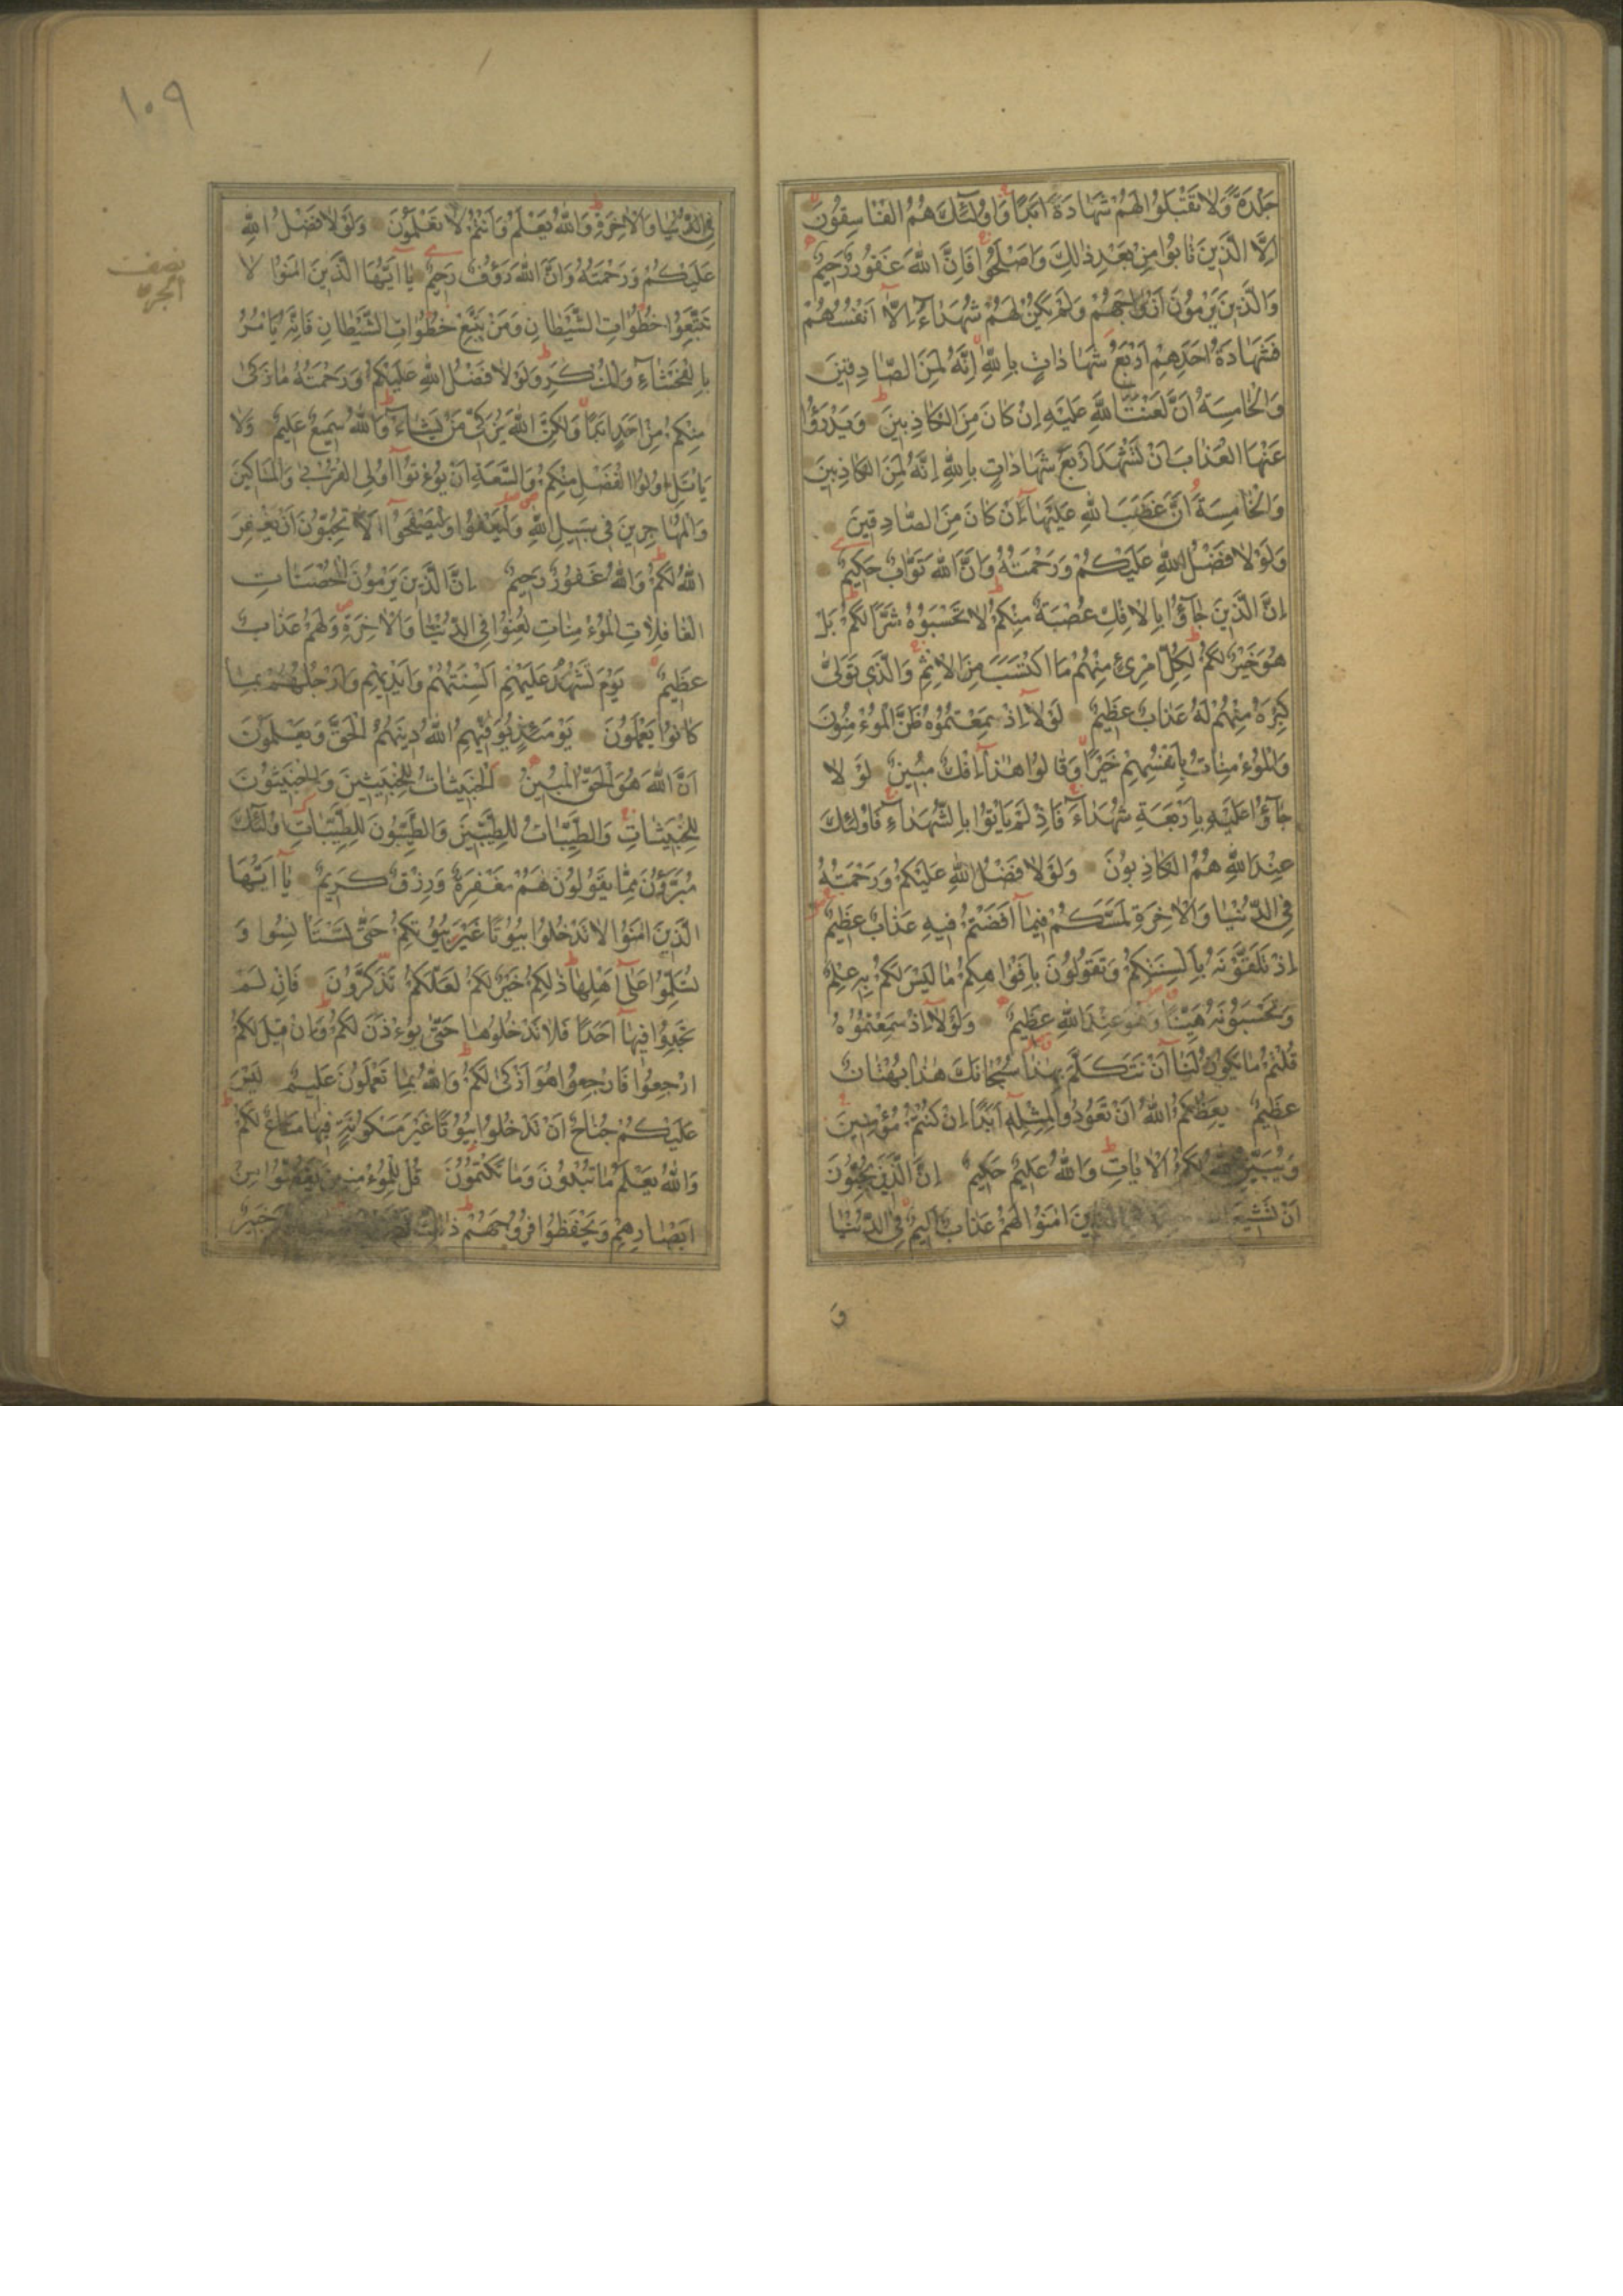 جَلْدَةً وَلَا تَقْبَلُوا لَهُمْ شَهَادَةً اَبَدًا وَاُولٰٓئِكَ هُمُ الْفَاسِقُونَ
اِلَّا الَّذِينَ تَابُوا مِنْ بَعْدِ ذٰلِكَ وَاَصْلَحُوا فَاِنَّ اللّٰهَ غَفُورٌ رَحِيمٌ
وَالَّذِينَ يَرْمُونَ اَزْوَاجَهُمْ وَلَمْ يَكُنْ لَهُمْ شُهَدَآءُ اِلَّآ اَنْفُسُهُمْ
فَشَهَادَةُ اَحَدِهِمْ اَرْبَعُ شَهَادَاتٍ بِاللّٰهِ اِنَّهُ لَمِنَ الصَّادِقِينَ
وَالْخَامِسَةُ اَنَّ لَعْنَتَ اللّٰهِ عَلَيْهِ اِنْ كَانَ مِنَ الْكَاذِبِينَ وَيَدْرَؤُا
عَنْهَا الْعَذَابَ اَنْ تَشْهَدَ اَرْبَعَ شَهَادَاتٍ بِاللّٰهِ اِنَّهُ لَمِنَ الْكَاذِبِينَ
وَالْخَامِسَةَ اَنَّ غَضَبَ اللّٰهِ عَلَيْهَآ اِنْ كَانَ مِنَ الصَّادِقِينَ
وَلَوْلَا فَضْلُ اللّٰهِ عَلَيْكُمْ وَرَحْمَتُهُ وَاَنَّ اللّٰهَ تَوَّابٌ حَكِيمٌ
اِنَّ الَّذِينَ جَآؤُا بِالْاِفْكِ عُصْبَةٌ مِنْكُمْ لَا تَحْسَبُوهُ شَرًّا لَكُمْ بَلْ
هُوَ خَيْرٌ لَكُمْ لِكُلِّ امْرِئٍ مِنْهُمْ مَا اكْتَسَبَ مِنَ الْاِثْمِ وَالَّذِي تَوَلّٰى
كِبْرَهُ مِنْهُمْ لَهُ عَذَابٌ عَظِيمٌ لَوْلَآ اِذْ سَمِعْتُمُوهُ ظَنَّ الْمُؤْمِنُونَ
وَالْمُؤْمِنَاتُ بِاَنْفُسِهِمْ خَيْرًا وَقَالُوا هٰذَآ اِفْكٌ مُبِينٌ لَوْلَا
جَآؤُا عَلَيْهِ بِاَرْبَعَةِ شُهَدَآءَ فَاِذْ لَمْ يَاْتُوا بِالشُّهَدَآءِ فَاُولٰٓئِكَ
عِنْدَ اللّٰهِ هُمُ الْكَاذِبُونَ وَلَوْلَا فَضْلُ اللّٰهِ عَلَيْكُمْ وَرَحْمَتُهُ
فِي الدُّنْيَا وَالْاٰخِرَةِ لَمَسَّكُمْ فِيمَآ اَفَضْتُمْ فِيهِ عَذَابٌ عَظِيمٌ
اِذْ تَلَقَّوْنَهُ بِاَلْسِنَتِكُمْ وَتَقُولُونَ بِاَفْوَاهِكُمْ مَا لَيْسَ لَكُمْ بِهِ عِلْمٌ
وَتَحْسَبُونَهُ هَيِّنًا وَهُوَ عِنْدَ اللّٰهِ عَظِيمٌ وَلَوْلَآ اِذْ سَمِعْتُمُوهُ
قُلْتُمْ مَا يَكُونُ لَنَآ اَنْ نَتَكَلَّمَ بِهٰذَا سُبْحَانَكَ هٰذَا بُهْتَانٌ
عَظِيمٌ يَعِظُكُمُ اللّٰهُ اَنْ تَعُودُوا لِمِثْلِهِٓ اَبَدًا اِنْ كُنْتُمْ مُؤْمِنِينَ
وَيُبَيِّنُ اللّٰهُ لَكُمُ الْاٰيَاتِ وَاللّٰهُ عَلِيمٌ حَكِيمٌ اِنَّ الَّذِينَ يُحِبُّونَ
اَنْ تَشِيعَ اٰمَنُوا لَهُمْ عَذَابٌ اَلِيمٌ فِي الدُّنْيَا
وَ
١٠٩
فِي الدُّنْيَا وَالْاٰخِرَةِ وَاللّٰهُ يَعْلَمُ وَاَنْتُمْ لَا تَعْلَمُونَ وَلَوْلَا فَضْلُ اللّٰهِ
عَلَيْكُمْ وَرَحْمَتُهُ وَاَنَّ اللّٰهَ رَؤُفٌ رَحِيمٌ يَآ اَيُّهَا الَّذِينَ اٰمَنُوا لَا
نصف
الجزء
تَتَّبِعُوا خُطُوَاتِ الشَّيْطَانِ وَمَنْ يَتَّبِعْ خُطُوَاتِ الشَّيْطَانِ فَاِنَّهُ يَاْمُرُ
بِالْفَحْشَآءِ وَالْمُنْكَرِ وَلَوْلَا فَضْلُ اللّٰهِ عَلَيْكُمْ وَرَحْمَتُهُ مَا زَكٰى
مِنْكُمْ مِنْ اَحَدٍ اَبَدًا وَلٰكِنَّ اللّٰهَ يُزَكِّي مَنْ يَشَآءُ وَاللّٰهُ سَمِيعٌ عَلِيمٌ وَلَا
يَاْتَلِ اُولُوا الْفَضْلِ مِنْكُمْ وَالسَّعَةِ اَنْ يُؤْتُوٓا اُولِي الْقُرْبٰى وَالْمَسَاكِينَ
وَالْمُهَاجِرِينَ فِي سَبِيلِ اللّٰهِ وَلْيَعْفُوا وَلْيَصْفَحُوٓا اَلَا تُحِبُّونَ اَنْ يَغْفِرَ
اللّٰهُ لَكُمْ وَاللّٰهُ غَفُورٌ رَحِيمٌ اِنَّ الَّذِينَ يَرْمُونَ الْمُحْصَنَاتِ
الْغَافِلَاتِ الْمُؤْمِنَاتِ لُعِنُوا فِي الدُّنْيَا وَالْاٰخِرَةِ وَلَهُمْ عَذَابٌ
عَظِيمٌ يَوْمَ تَشْهَدُ عَلَيْهِمْ اَلْسِنَتُهُمْ وَاَيْدِيهِمْ وَاَرْجُلُهُمْ بِمَا
كَانُوا يَعْمَلُونَ يَوْمَئِذٍ يُوَفِّيهِمُ اللّٰهُ دِينَهُمُ الْحَقَّ وَيَعْلَمُونَ
اَنَّ اللّٰهَ هُوَ الْحَقُّ الْمُبِينُ اَلْخَبِيثَاتُ لِلْخَبِيثِينَ وَالْخَبِيثُونَ
لِلْخَبِيثَاتِ وَالطَّيِّبَاتُ لِلطَّيِّبِينَ وَالطَّيِّبُونَ لِلطَّيِّبَاتِ اُولٰٓئِكَ
مُبَرَّؤُنَ مِمَّا يَقُولُونَ لَهُمْ مَغْفِرَةٌ وَرِزْقٌ كَرِيمٌ يَآ اَيُّهَا
الَّذِينَ اٰمَنُوا لَا تَدْخُلُوا بُيُوتًا غَيْرَ بُيُوتِكُمْ حَتّٰى تَسْتَاْنِسُوا وَ
تُسَلِّمُوا عَلٰٓى اَهْلِهَا ذٰلِكُمْ خَيْرٌ لَكُمْ لَعَلَّكُمْ تَذَكَّرُونَ فَاِنْ لَمْ
تَجِدُوا فِيهَآ اَحَدًا فَلَا تَدْخُلُوهَا حَتّٰى يُؤْذَنَ لَكُمْ وَاِنْ قِيلَ لَكُمُ
ارْجِعُوا فَارْجِعُوا هُوَ اَزْكٰى لَكُمْ وَاللّٰهُ بِمَا تَعْمَلُونَ عَلِيمٌ لَيْسَ
عَلَيْكُمْ جُنَاحٌ اَنْ تَدْخُلُوا بُيُوتًا غَيْرَ مَسْكُونَةٍ فِيهَا مَتَاعٌ لَكُمْ
وَاللّٰهُ يَعْلَمُ مَا تُبْدُونَ وَمَا تَكْتُمُونَ قُلْ لِلْمُؤْمِنِينَ يَغُضُّوا مِنْ
اَبْصَارِهِمْ وَيَحْفَظُوا فُرُوجَهُمْ ذٰلِكَ خَبِيرٌ